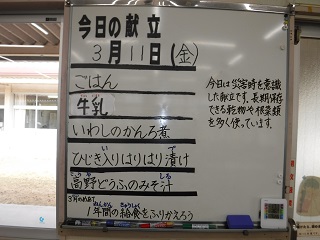 今日の献立
3月11日(金)
ごはん
牛乳
いわしのかんろ煮
ひじき入りはりはり漬け
高野どうふのみそ汁
3月のめあて
1年間の給食をふりかえろう
今日は災害時を意識
した献立です。長期保存
できる乾物や根菜類
を多く使っています。